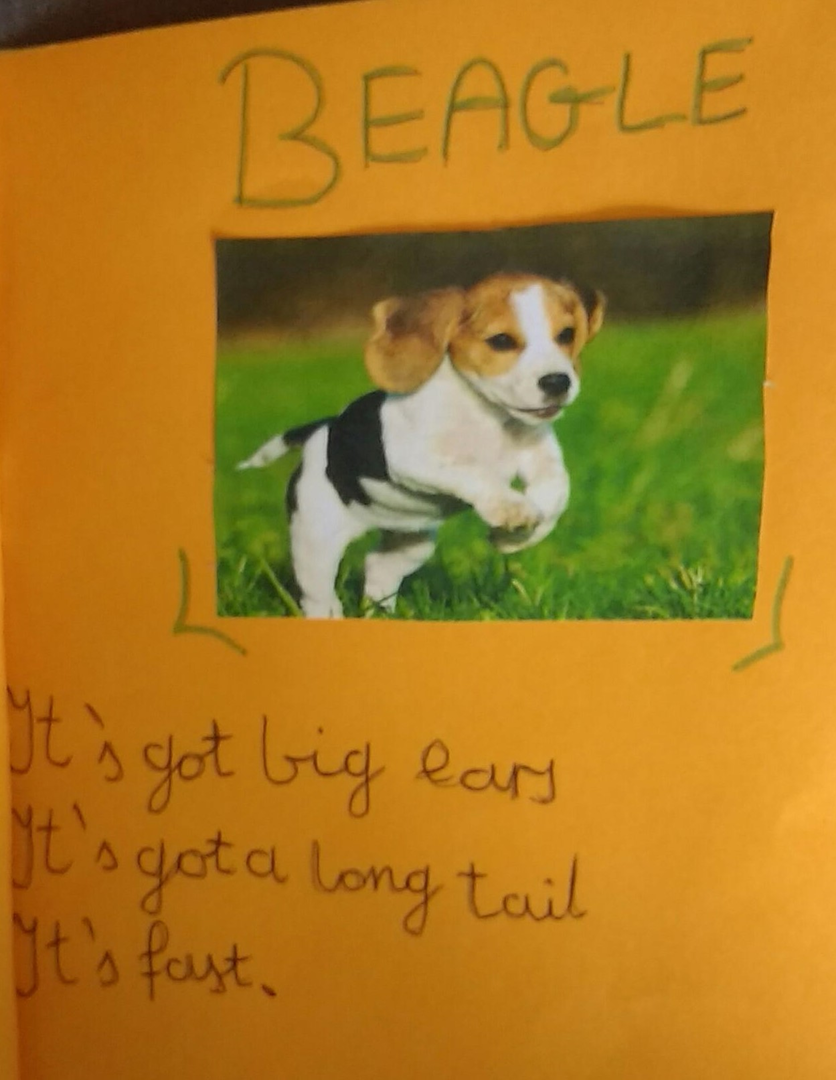 BEAGLE
It's got big ears
It's got a long tail
It's fast.